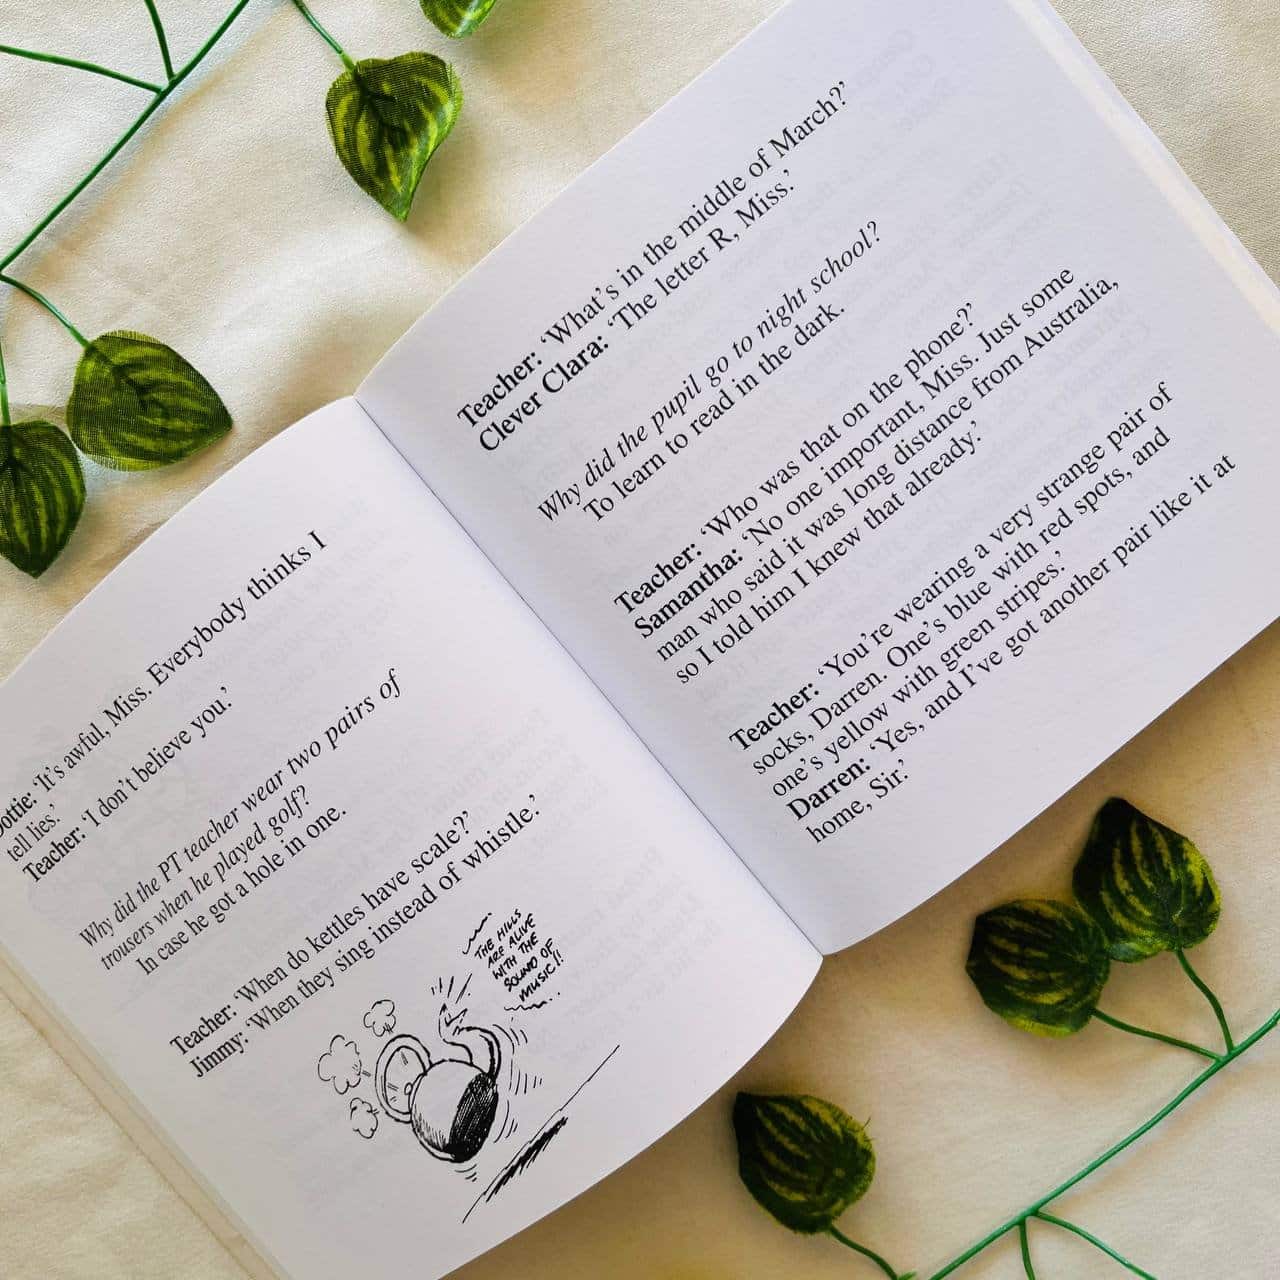 Dottie: ‘It’s awful, Miss. Everybody thinks I
tell lies.’
Teacher: ‘I don’t believe you.’
Why did the PT teacher wear two pairs of
trousers when he played golf?
In case he got a hole in one.
Teacher: ‘When do kettles have scale?’
Jimmy: ‘When they sing instead of whistle.’
THE HILLS
ARE ALIVE
WITH THE
SOUND OF
MUSIC!!
Teacher: ‘What’s in the middle of March?’
Clever Clara: ‘The letter R, Miss.’
Why did the pupil go to night school?
To learn to read in the dark.
Teacher: ‘Who was that on the phone?’
Samantha: ‘No one important, Miss. Just some
man who said it was long distance from Australia,
so I told him I knew that already.’
Teacher: ‘You’re wearing a very strange pair of
socks, Darren. One’s blue with red spots, and
one’s yellow with green stripes.’
Darren: ‘Yes, and I’ve got another pair like it at
home, Sir.’